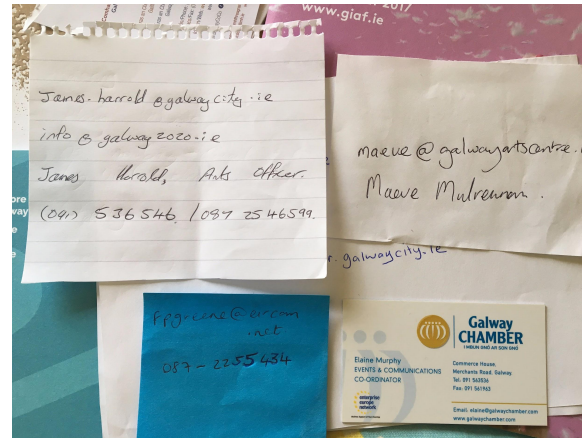 www.giaf.ie
2017
James.harrold@galwaycity.ie
info@galway2020.ie
James Harold, Arts Officer.
(091) 536546 / 087 2546599.
maeve@galwayartscentre.
Maeve Mulrennan.
r.galwaycity.ie
ppgreene@eircom
.net
087-2255434
Galway
CHAMBER
Elaine Murphy
EVENTS & COMMUNICATIONS
CO-ORDINATOR
enterprise
europe
network
Commerce House,
Merchants Road, Galway
Tel: 091 563536
Fax: 091 561963
Email: elaine@galwaychamber.com
www.galwaychamber.com